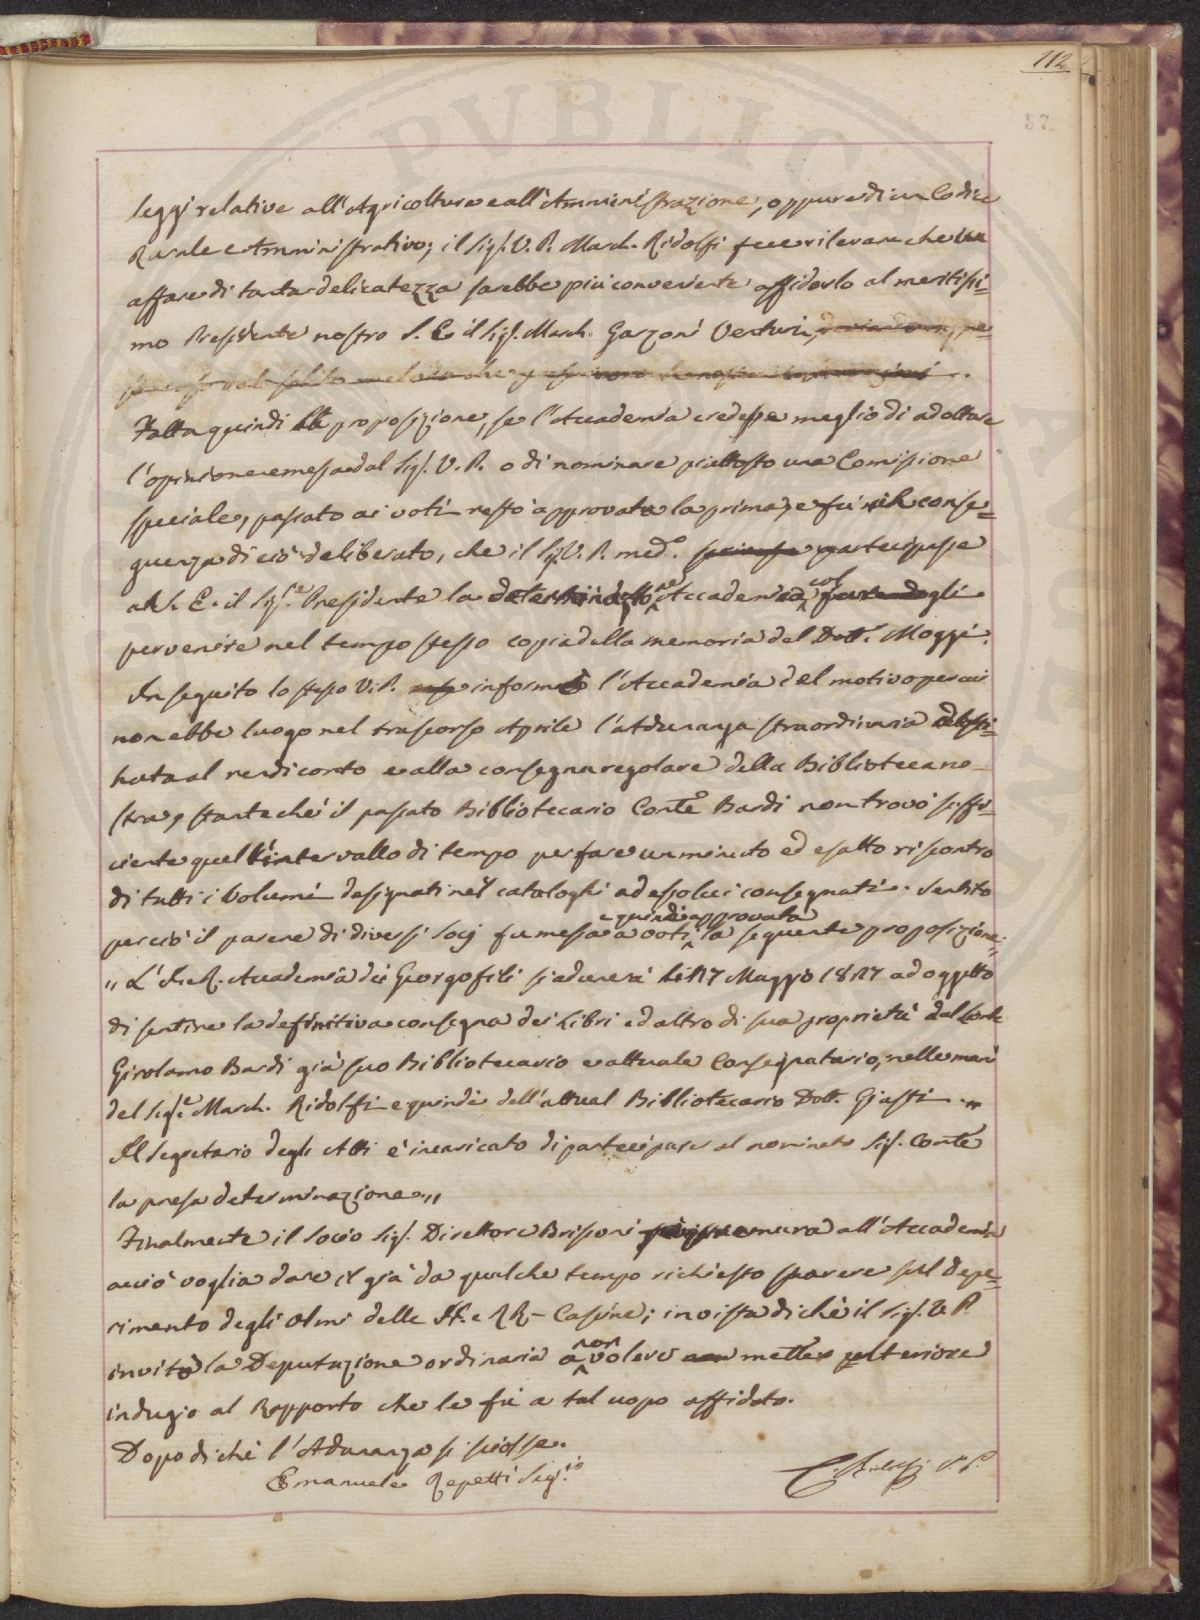 112
57
PVBLIC
leggi relative all'Agricoltura e all'Amministrazione, oppure di un Codice
Rurale e Amministrativo; il Sig. V. P. March. Ridolfi fece rilevare che un
affare di tanta delicatezza sarebbe più conveniente affidarlo al meritissi=
mo Presidente nostro S. E. il Sig. March. Garzoni Venturi,
Fatta quindi la proposizione, se l'Accademia credesse meglio di adottare
l'opinione emessa dal Sig. V. P. o di nominare piuttosto una Comissione
speciale, passato ai voti restò approvata la prima, e fù in conse=
guenza di ciò deliberato, che il Sig. V. P. med.o partecipasse
a S. E. il Sig.re Presidente la Accademia col
pervenire nel tempo stesso copia della memoria del Dott. Moggi.
In seguito lo stesso V. P. informò l'Accademia del motivo per cui
non ebbe luogo nel trascorso Aprile l'Adunanza straordinaria
nata al rendiconto e alla consegna regolare della Biblioteca no=
stra, stante chè il passato Bibliotecario Conte Bardi non trovò suffi=
ciente quell'intervallo di tempo per fare un minuto ed esatto riscontro
di tutti i Volumi designati nei cataloghi ad esso lui consegnati. Sentito
perciò il parere di diversi Socj fu messa a voti e quindi approvata la seguente proposizione:
„ L'I. e R. Accademia dei Georgofili si adunerà li 17 Maggio 1817 ad oggetto
di sentire la definitiva consegna dei Libri ed altro di sua proprietà dal Conte
Girolamo Bardi già suo Bibliotecario e attuale Consegnatario, nelle mani
del Sig.e March. Ridolfi e quindi dell'attual Bibliotecario Dott. Giusti. „
Il Segretario degli Atti è incaricato di partecipare al nominato Sig. Conte
la presa determinazione. „
Finalmente il Socio Sig. Direttore Brisoni premura all'Accademia
acciò voglia dare il già da qualche tempo richiesto parere sul depe=
rimento degli Olmi delle II. e RR. Cascine; in vista di chè il Sig. V. P.
invitò la Deputazione ordinaria a non volere metter ulteriore
indugio al Rapporto che le fù a tal uopo affidato.
Dopo di chè l'Adunanza si sciolse.
Emanuele Repetti Seg.rio
C. Ridolfi V. P.